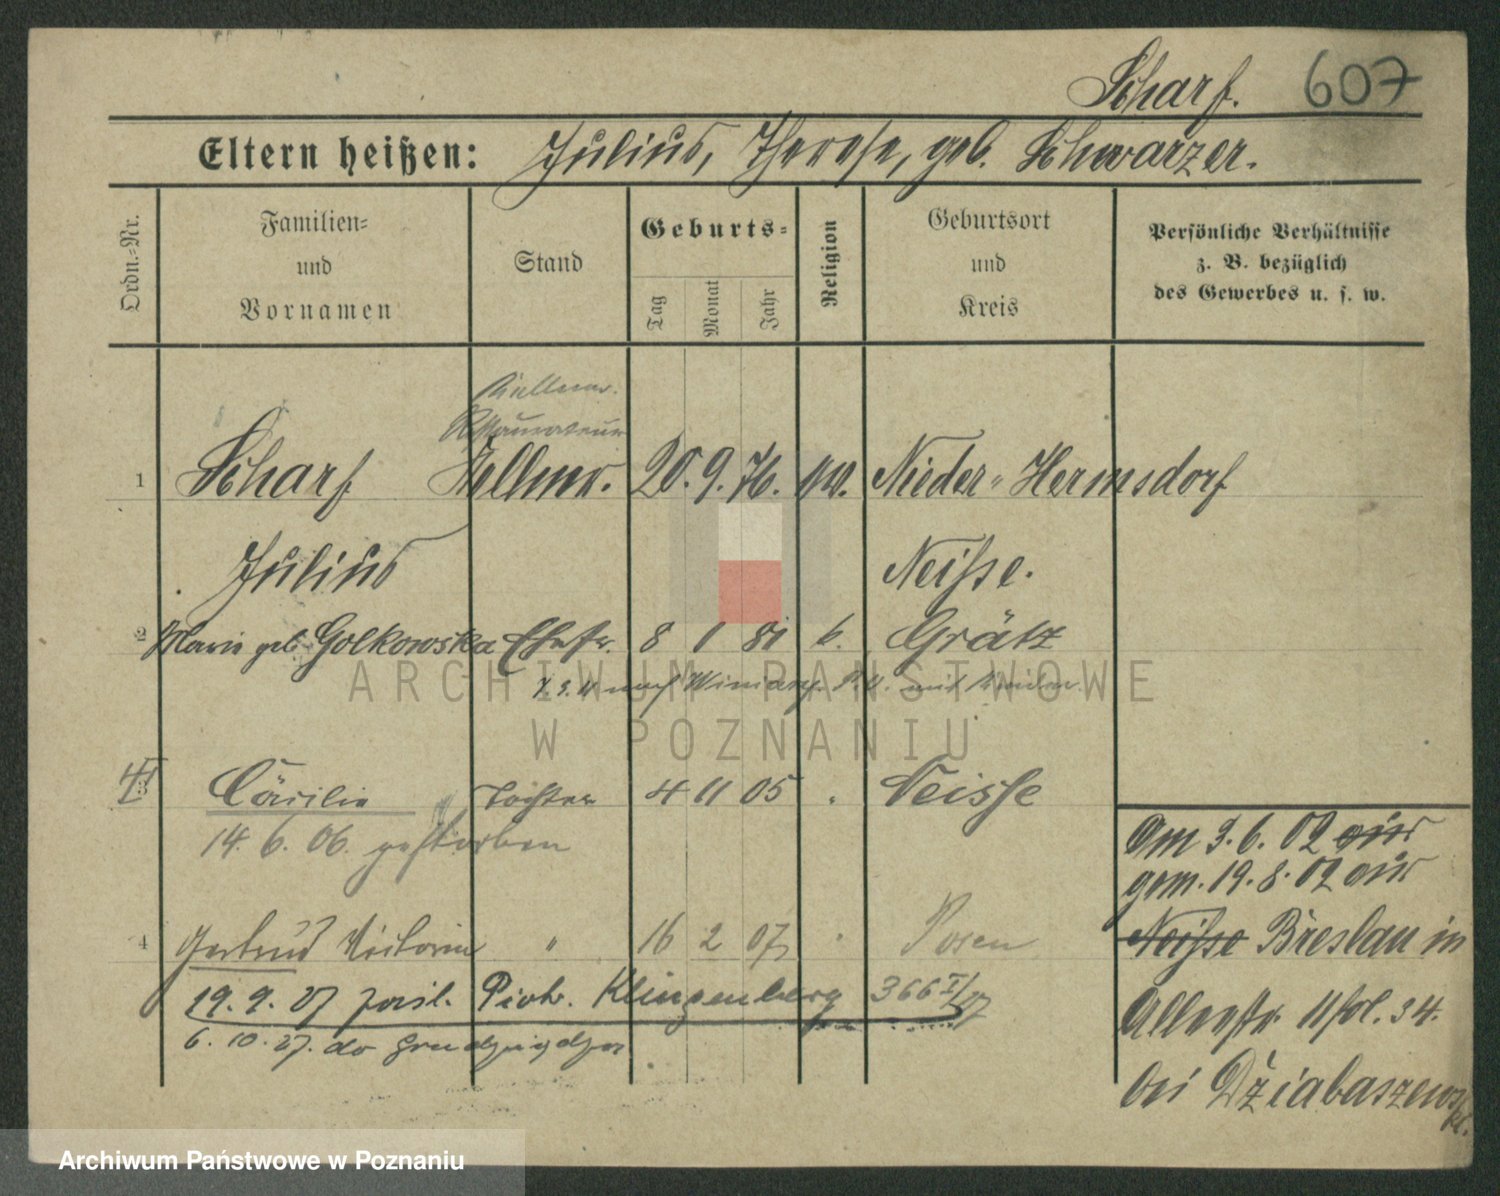 Scharf. 607
Eltern heißen: Julius, Therese, geb. Schwarzer.
Ordn.-Nr.
Familien-
und
Vornamen
Stand
Geburts-
Tag
Monat
Jahr
Religion
Geburtsort
und
Kreis
Persönliche Verhältnisse
z. B. bezüglich
des Gewerbes u. s. w.
Kellner.
Restaurateur
1 Scharf Kellner. 20. 9. 76. Nieder-Hermsdorf
Julius Neisse.
2 Marie geb. Golkowska Ehefr. 8 1 81 k. Grätz
ARCHIWUM PAŃSTWOWE
W POZNANIU
3 Cäcilie Tochter 4 11 05 Neisse
14. 6. 06. gestorben
4 Gertrud Victoria " 16 2 07 " Posen
19. 9. 27 Piotr. Klingenberg 366
6. 10. 27. do
Am 3. 6. 02 aus
gem. 19. 8. 02 aus
Neisse Breslau in
34.
bei Dziabaszewski.
Archiwum Państwowe w Poznaniu